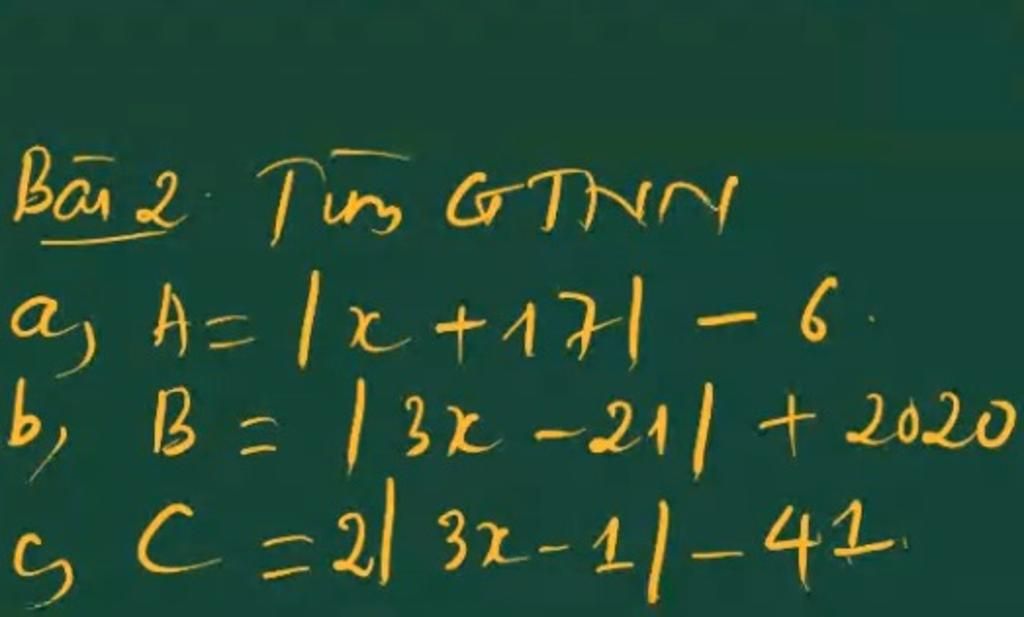 Bài 2. Tìm GTNN
a, A = |x + 17| - 6.
b, B = |3x - 21| + 2020
c, C = 2|3x - 1| - 41.